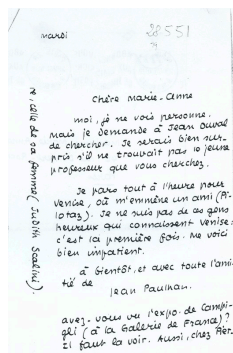 mardi
28551
Chère Marie-Anne
moi, je ne vois personne.
Mais je demande à Jean Duval
de chercher. Je serais bien sur-
pris s'il ne trouvait pas le jeune
professeur que vous cherchez.
Je pars tout à l'heure pour
Venise, où m'emmène un ami (Pi-
lotaz). Je ne suis pas de ces gens
heureux qui connaissent Venise:
c'est la première fois. Me voici
bien impatient.
à bientôt, et avec toute l'ami-
tié de
Jean Paulhan.
avez-vous vu l'expo. de Campi-
gli (à la Galerie de France)?
Il faut la voir. Aussi, chez
celle de sa femme (Judith Scalini).